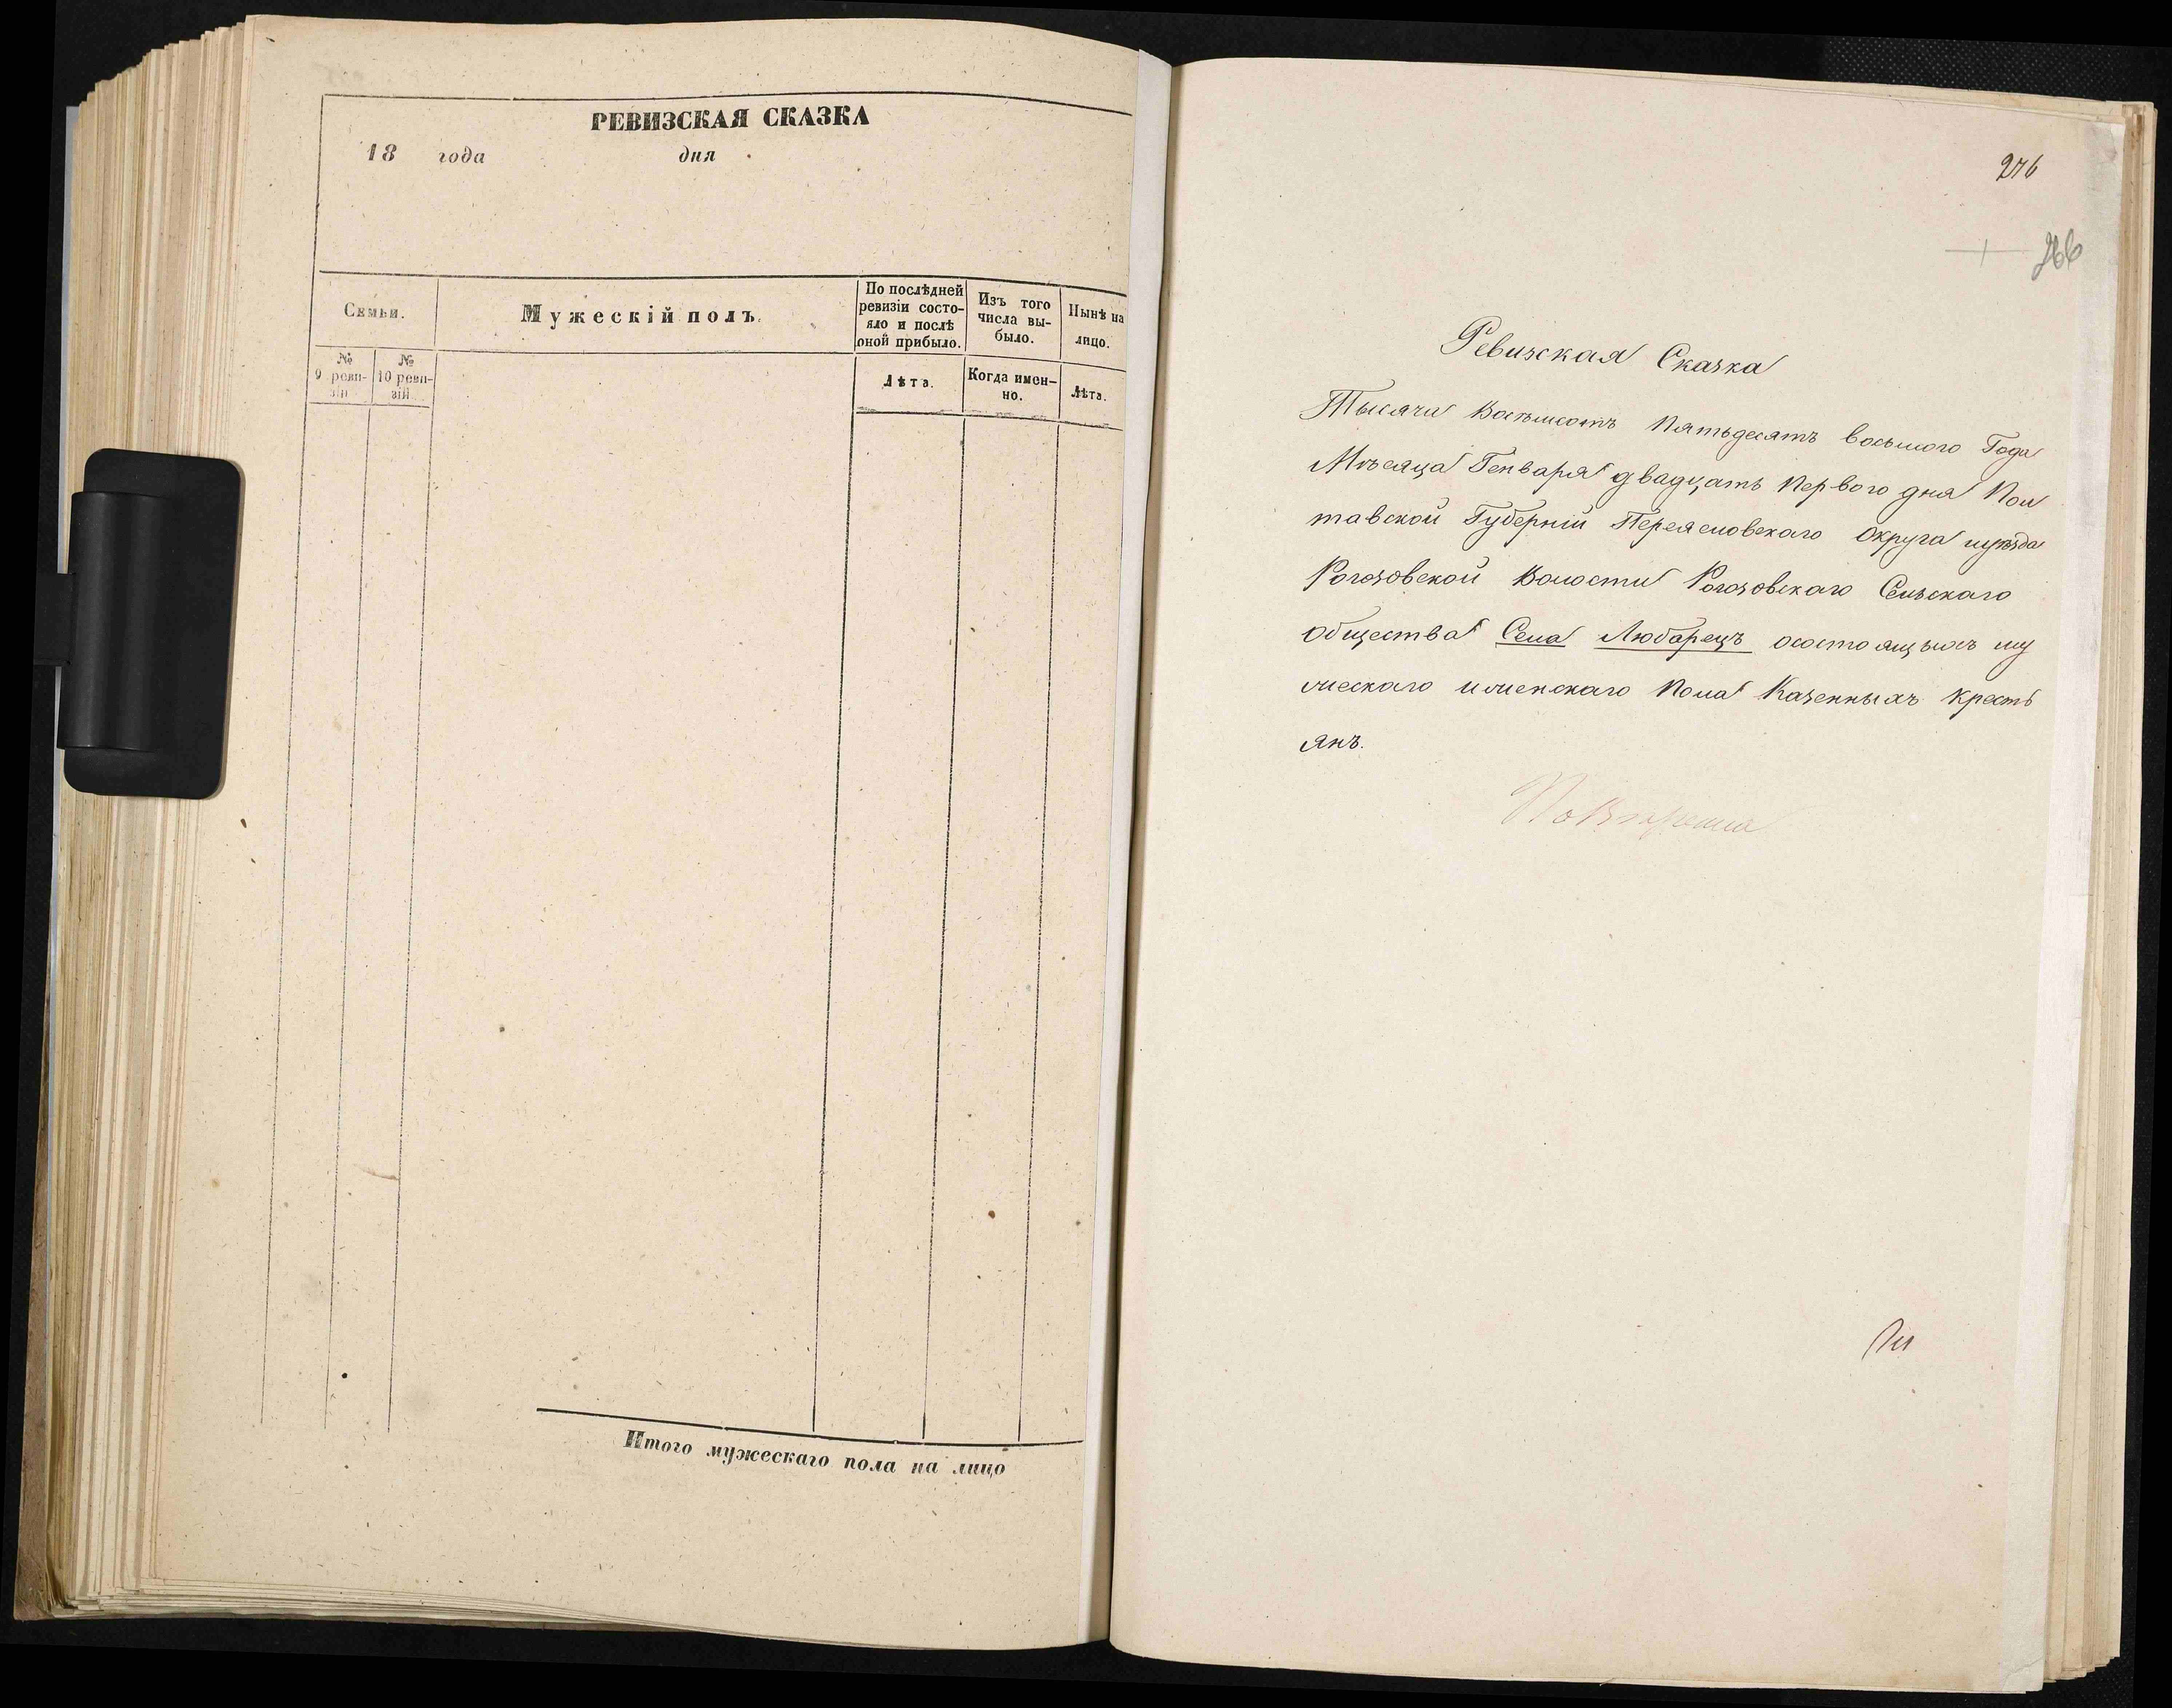 РЕВИЗСКАЯ СКАЗКА
18 года дня
Семьи.
Мужескій полъ.
По послѣдней
ревизіи состо-
яло и послѣ
оной прибыло.
Изъ того
числа вы-
было.
Нынѣ на
лицо.
№
9 реви-
зіи
№
10 реви-
зіи
Лѣта.
Когда имен-
но.
Лѣта.
Итого мужескаго пола на лицо
276
Ревизская Сказка
Тысяча Восъмсотъ Пятьдесятъ восьмого Года
Мѣсяца Генваря двадцать Первого дня Пол
тавской Губерніи Переясловского Округа иуѣзда
Рогозовской Волости Рогозовскаго Сельскаго
общества Села Любарецъ осостоящыхъ му
жескаго иженскаго Пола Казенныхъ кресть
янъ.